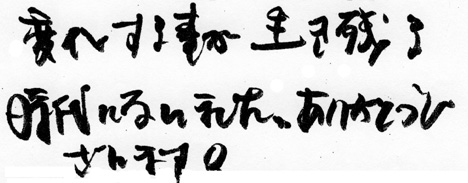 変化する事が生き残る
時代になりました。ありがとうご
ざいます。